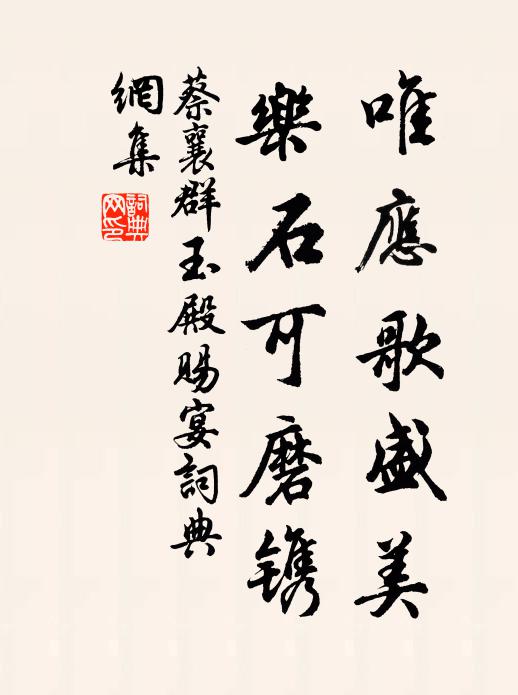 唯應歌盛美
樂石可磨镌
蔡襄群玉殿賜宴詞典
網集
詞典網印